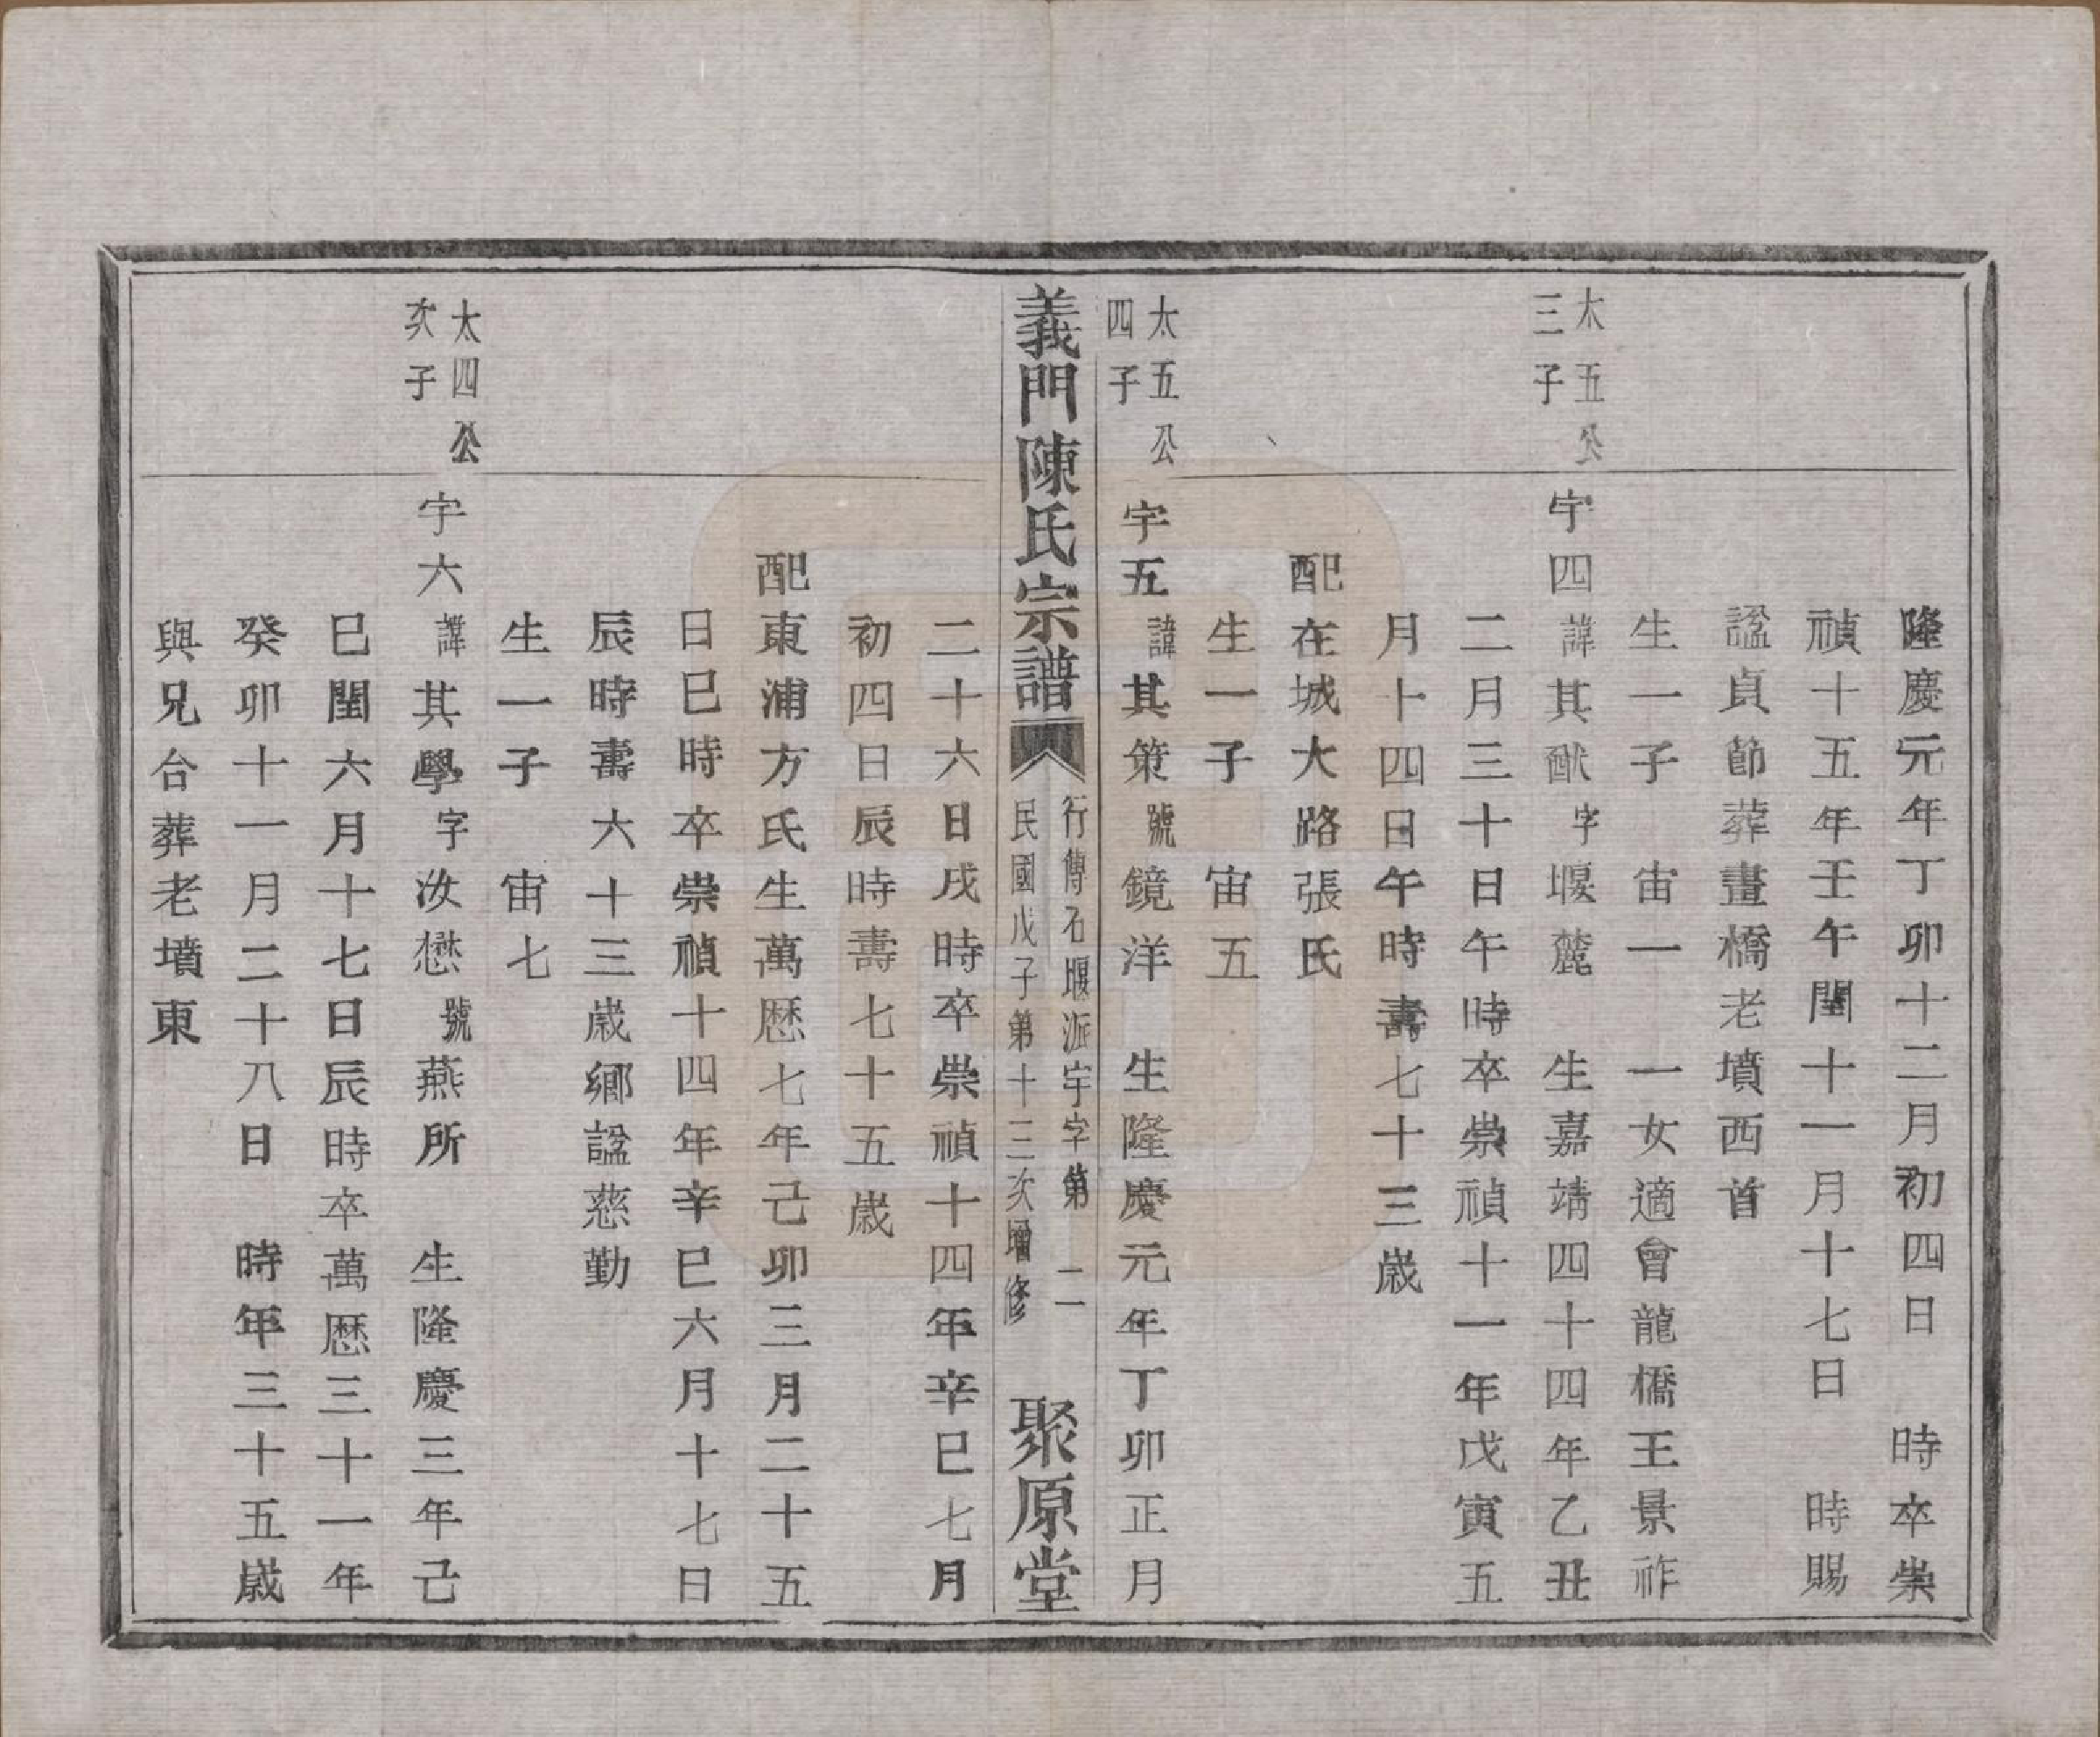 隆慶元年丁卯十二月初四日　時卒崇
禎十五年壬午閏十一月十七日　時賜
諡貞節葬畫橋老墳西首
生一子　宙一　一女適會龍橋王景祚
太五公
三子
宇四諱其猷字堰麓　生嘉靖四十四年乙丑
二月三十日午時卒崇禎十一年戊寅五
月十四日午時壽七十三歲
配在城大路張氏
生一子　宙五
太五公
四子
宇五諱其策號鏡洋　生隆慶元年丁卯正月
義門陳氏宗譜
行傳石堰派宇字第　二
民國戊子第十三次增修
聚原堂
二十六日戌時卒崇禎十四年辛巳七月
初四日辰時壽七十五歲
配東浦方氏生萬曆七年己卯三月二十五
日巳時卒崇禎十四年辛巳六月十七日
辰時壽六十三歲鄉諡慈勤
生一子　宙七
太四公
次子
宇六諱其學字汝懋號燕所　生隆慶三年己
巳閏六月十七日辰時卒萬曆三十一年
癸卯十一月二十八日　時年三十五歲
與兄合葬老墳東